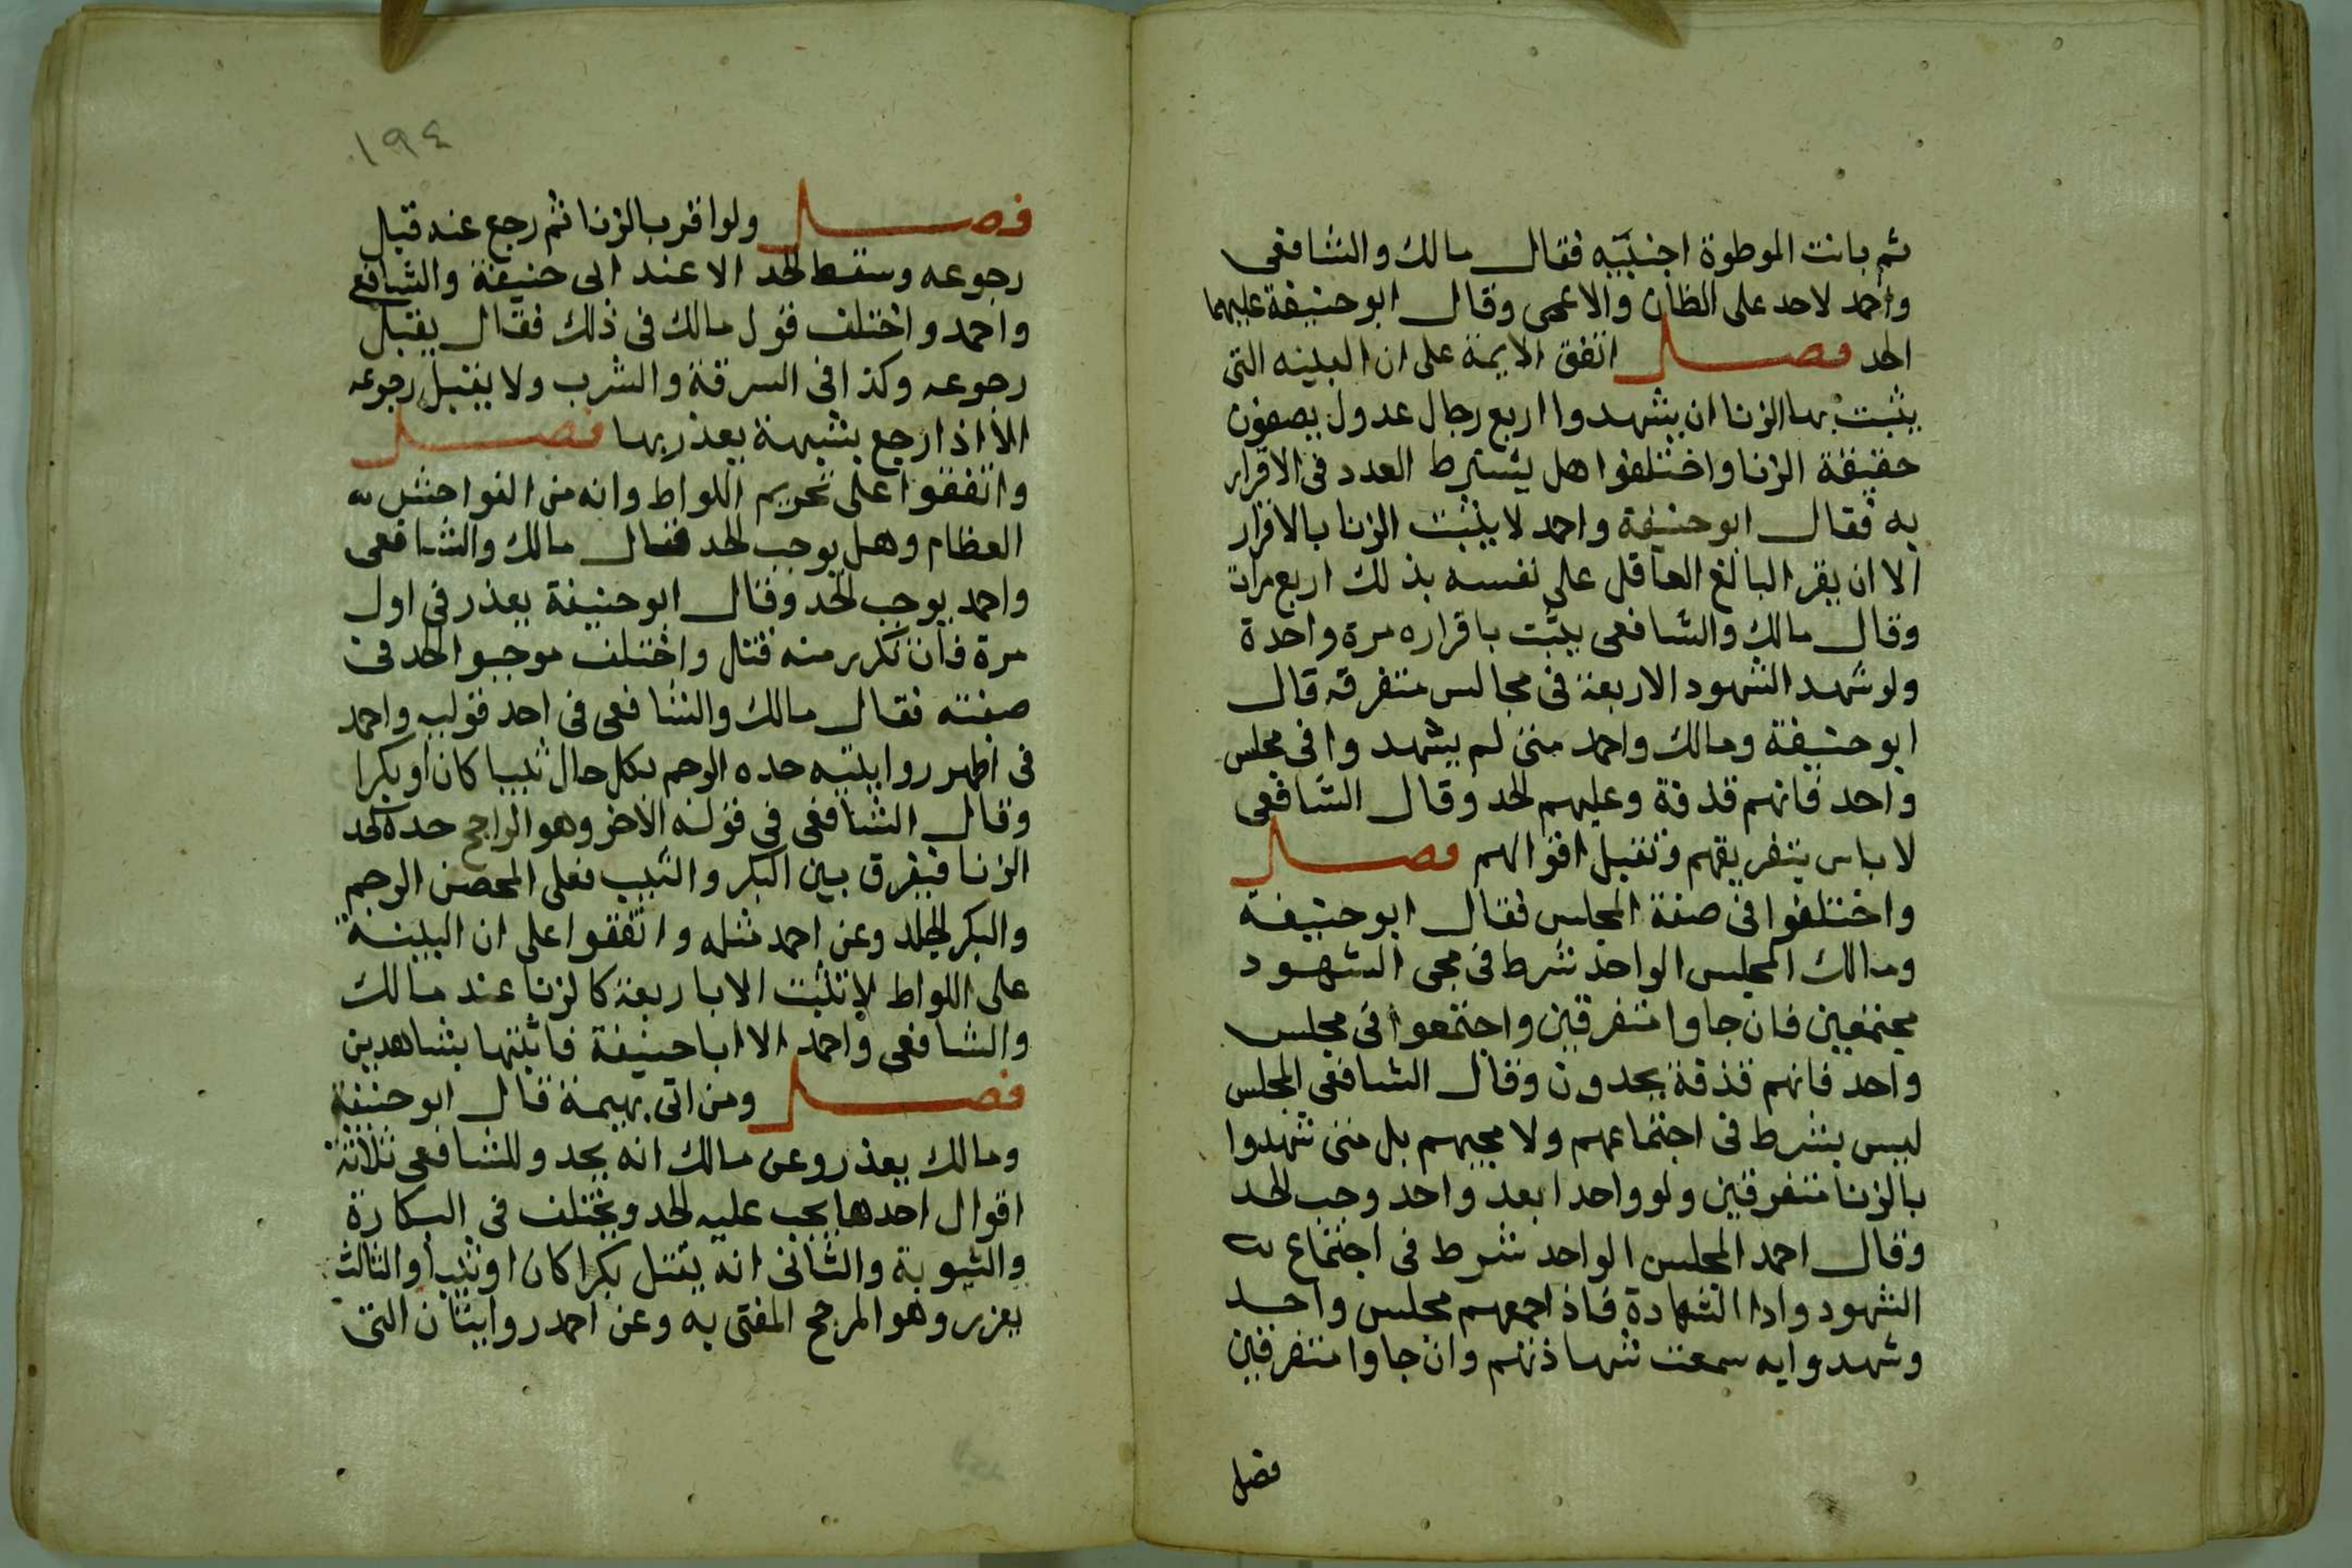 ثم بانت الموطوة اجنبيه فقال مالك والشافعى
واحمد لاحد على الظان والاعمى وقال ابو حنيفة عليهما
الحد فصل اتفق الايمة على ان البينه التى
يثبت بها الزنا ان يشهدوا اربع رجال عدول يصفون
حقيقة الزنا واختلفوا هل يشترط العدد فى الاقرار
به فقال ابو حنيفة واحمد لا يثبت الزنا بالاقرار
الا ان يقر البالغ العاقل على نفسه بذلك اربع مرات
وقال مالك والشافعى يثبت باقراره مرة واحدة
ولو شهد الشهود الاربعة فى مجالس متفرقه قال
ابو حنيفة ومالك واحمد متى لم يشهدوا فى مجلس
واحد فانهم قذفة وعليهم الحد وقال الشافعى
لا باس بتفريقهم وتقبل اقوالهم فصل
واختلفوا فى صفة المجلس فقال ابو حنيفة
ومالك المجلس الواحد شرط فى مجى الشهود
مجتمعين فان جاوا متفرقين واجتمعوا فى مجلس
واحد فانهم قذفة يحدون وقال الشافعى المجلس
ليس بشرط فى اجتماعهم ولا مجيهم بل متى شهدوا
بالزنا متفرقين ولو واحدا بعد واحد وجب الحد
وقال احمد المجلس الواحد شرط فى اجتماع
الشهود وادا الشهادة فاذا جمعهم مجلس واحد
وشهدوا به سمعت شهادتهم وان جاوا متفرقين
فصل
١٩٤
فصل ولو اقر بالزنا ثم رجع عنه قبل
رجوعه وسقط الحد الا عند ابى حنيفة والشافعى
واحمد واختلف قول مالك فى ذلك فقال يقبل
رجوعه وكذا فى السرقة والشرب ولا يقبل رجوعه
الا اذا رجع بشبهة يعذر بها فصل
واتفقوا على تحريم اللواط وانه من الفواحش
العظام وهل يوجب الحد فقال مالك والشافعى
واحمد يوجب الحد وقال ابو حنيفة يعذر فى اول
مرة فان تكرر منه قتل واختلف موجبوا الحد فى
صفته فقال مالك والشافعى فى احد قوليه واحمد
فى اظهر روايتيه حده الرجم بكل حال ثيبا كان او بكرا
وقال الشافعى فى قوله الاخر وهو الراجح حده حد
الزنا فيفرق بين البكر والثيب فعلى المحصن الرجم
والبكر الجلد وعن احمد مثله واتفقوا على ان البينة
على اللواط لا تثبت الا باربعة كالزنا عند مالك
والشافعى واحمد الا ابا حنيفة فاثبتها بشاهدين
فصل ومن اتى بهيمة قال ابو حنيفة
ومالك يعذر وعن مالك انه يحد وللشافعى ثلاثة
اقوال احدها يجب عليه الحد ويختلف فى البكارة
والثيوبة والثانى انه يقتل بكرا كان او ثيبا والثالث
يعزر وهو المرجح المفتى به وعن احمد روايتان التى